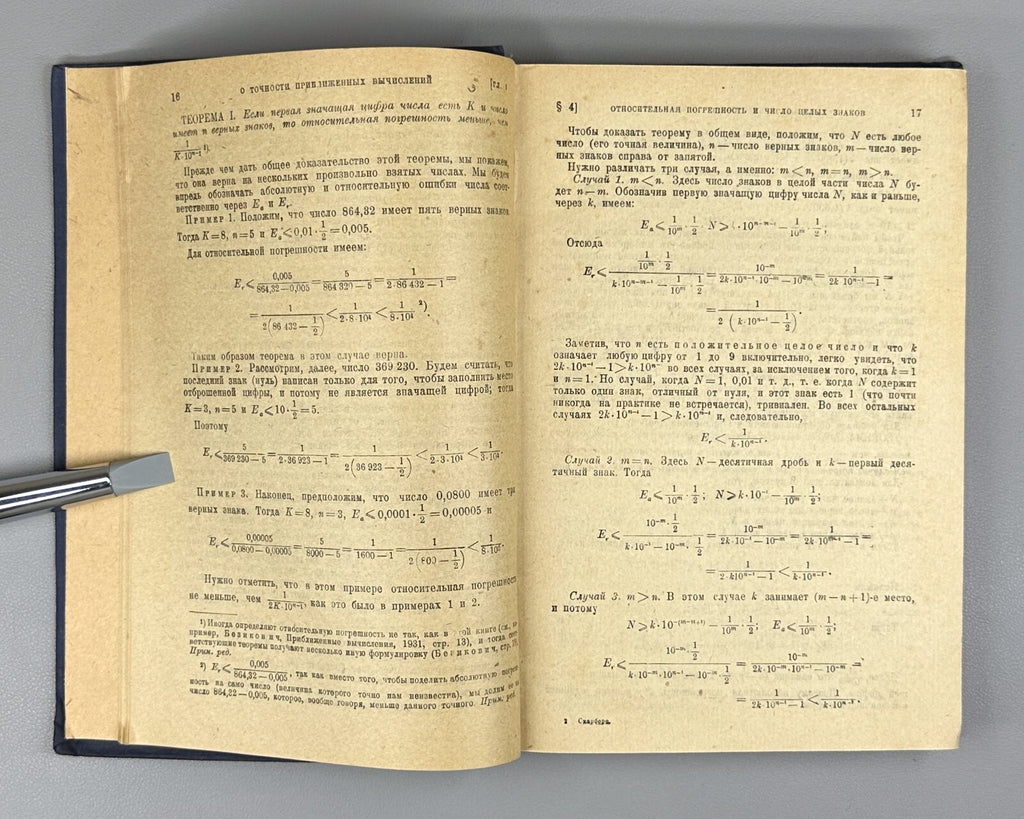 16 О ТОЧНОСТИ ПРИБЛИЖЕННЫХ ВЫЧИСЛЕНИЙ [ГЛ. I
ТЕОРЕМА I. Если первая значащая цифра числа есть K и число
имеет n верных знаков, то относительная погрешность меньше, чем
1/(K·10ⁿ⁻¹) ¹).
Прежде чем дать общее доказательство этой теоремы, мы покажем,
что она верна на нескольких произвольно взятых числах. Мы будем
впредь обозначать абсолютную и относительную ошибки числа соот-
ветственно через Eₐ и Eᵣ.
Пример 1. Положим, что число 864,32 имеет пять верных знаков.
Тогда K=8, n=5 и Eₐ⩽0,01·1/2=0,005.
Для относительной погрешности имеем:
Eᵣ⩽0,005/(864,32—0,005)=5/(864 320—5)=1/(2·86 432—1)=
=1/(2(86 432—1/2))<1/(2·8·10⁴)<1/(8·10⁴) ²).
Таким образом теорема в этом случае верна.
Пример 2. Рассмотрим, далее, число 369 230. Будем считать, что
последний знак (нуль) написан только для того, чтобы заполнить место
отброшенной цифры, и потому не является значащей цифрой; тогда
K=3, n=5 и Eₐ⩽10·1/2=5.
Поэтому
Eᵣ⩽5/(369 230—5)=1/(2·36 923—1)=1/(2(36 923—1/2))<1/(2·3·10⁴)<1/(3·10⁴).
Пример 3. Наконец, предположим, что число 0,0800 имеет три
верных знака. Тогда K=8, n=3, Eₐ⩽0,0001·1/2=0,00005 и
Eᵣ⩽0,00005/(0,0800—0,00005)=5/(8000—5)=1/(1600—1)=1/(2(800—1/2))<1/(8·10²).
Нужно отметить, что в этом примере относительная погрешность
не меньше, чем 1/(2K·10ⁿ⁻¹), как это было в примерах 1 и 2.
¹) Иногда определяют относительную погрешность не так, как в этой книге (см., на-
пример, Безикович, Приближенные вычисления, 1931, стр. 13), и тогда соот-
ветствующие теоремы получают несколько иную формулировку (Безикович, стр.
Прим. ред.
²) Eᵣ⩽0,005/(864,32—0,005), так как вместо того, чтобы поделить абсолютную погреш-
ность на само число (величина которого точно нам неизвестна), мы делим ее на
число 864,32—0,005, которое, вообще говоря, меньше данного точного. Прим. ред.
§ 4] ОТНОСИТЕЛЬНАЯ ПОГРЕШНОСТЬ И ЧИСЛО ЦЕЛЫХ ЗНАКОВ 17
Чтобы доказать теорему в общем виде, положим, что N есть любое
число (его точная величина), n — число верных знаков, m — число вер-
ных знаков справа от запятой.
Нужно различать три случая, а именно: m<n, m=n, m>n.
Случай 1. m<n. Здесь число знаков в целой части числа N бу-
дет n—m. Обозначив первую значащую цифру числа N, как и раньше,
через k, имеем:
Eₐ⩽1/10ᵐ·1/2 N⩾k·10ⁿ⁻ᵐ⁻¹—1/10ᵐ·1/2,
Отсюда
Eᵣ⩽(1/10ᵐ·1/2)/(k·10ⁿ⁻ᵐ⁻¹—1/10ᵐ·1/2)=10⁻ᵐ/(2k·10ⁿ⁻¹·10⁻ᵐ—10⁻ᵐ)=1/(2k·10ⁿ⁻¹—1)=
=1/(2(k·10ⁿ⁻¹—1/2)).
Заметив, что n есть положительное целое число и что k
означает любую цифру от 1 до 9 включительно, легко увидеть, что
2k·10ⁿ⁻¹—1>k·10ⁿ⁻¹ во всех случаях, за исключением того, когда k=1
и n=1. Но случай, когда N=1, 0,01 и т. д., т. е. когда N содержит
только один знак, отличный от нуля, и этот знак есть 1 (что почти
никогда на практике не встречается), тривиален. Во всех остальных
случаях 2k·10ⁿ⁻¹—1>k·10ⁿ⁻¹ и, следовательно,
Eᵣ<1/(k·10ⁿ⁻¹).
Случай 2. m=n. Здесь N—десятичная дробь и k—первый деся-
тичный знак. Тогда
Eₐ⩽1/10ᵐ·1/2; N⩾k·10⁻¹—1/10ᵐ·1/2;
Eᵣ⩽(10⁻ᵐ·1/2)/(k·10⁻¹—10⁻ᵐ·1/2)=10⁻ᵐ/(2k·10⁻¹—10⁻ᵐ)=1/(2k·10ᵐ⁻¹—1)=
=1/(2·k10ⁿ⁻¹—1)<1/(k·10ⁿ⁻¹).
Случай 3. m>n. В этом случае k занимает (m—n+1)-е место,
и потому
N⩾k·10⁻⁽ᵐ⁻ⁿ⁺¹⁾—1/10ᵐ·1/2; Eₐ⩽1/10ᵐ·1/2;
Eᵣ⩽(10⁻ᵐ·1/2)/(k·10⁻ᵐ·10ⁿ⁻¹—10⁻ᵐ·1/2)=10⁻ᵐ/(2k·10⁻ᵐ·10ⁿ⁻¹—10⁻ᵐ)=
=1/(2k·10ⁿ⁻¹—1)<1/(k·10ⁿ⁻¹).
2 Скарборо.